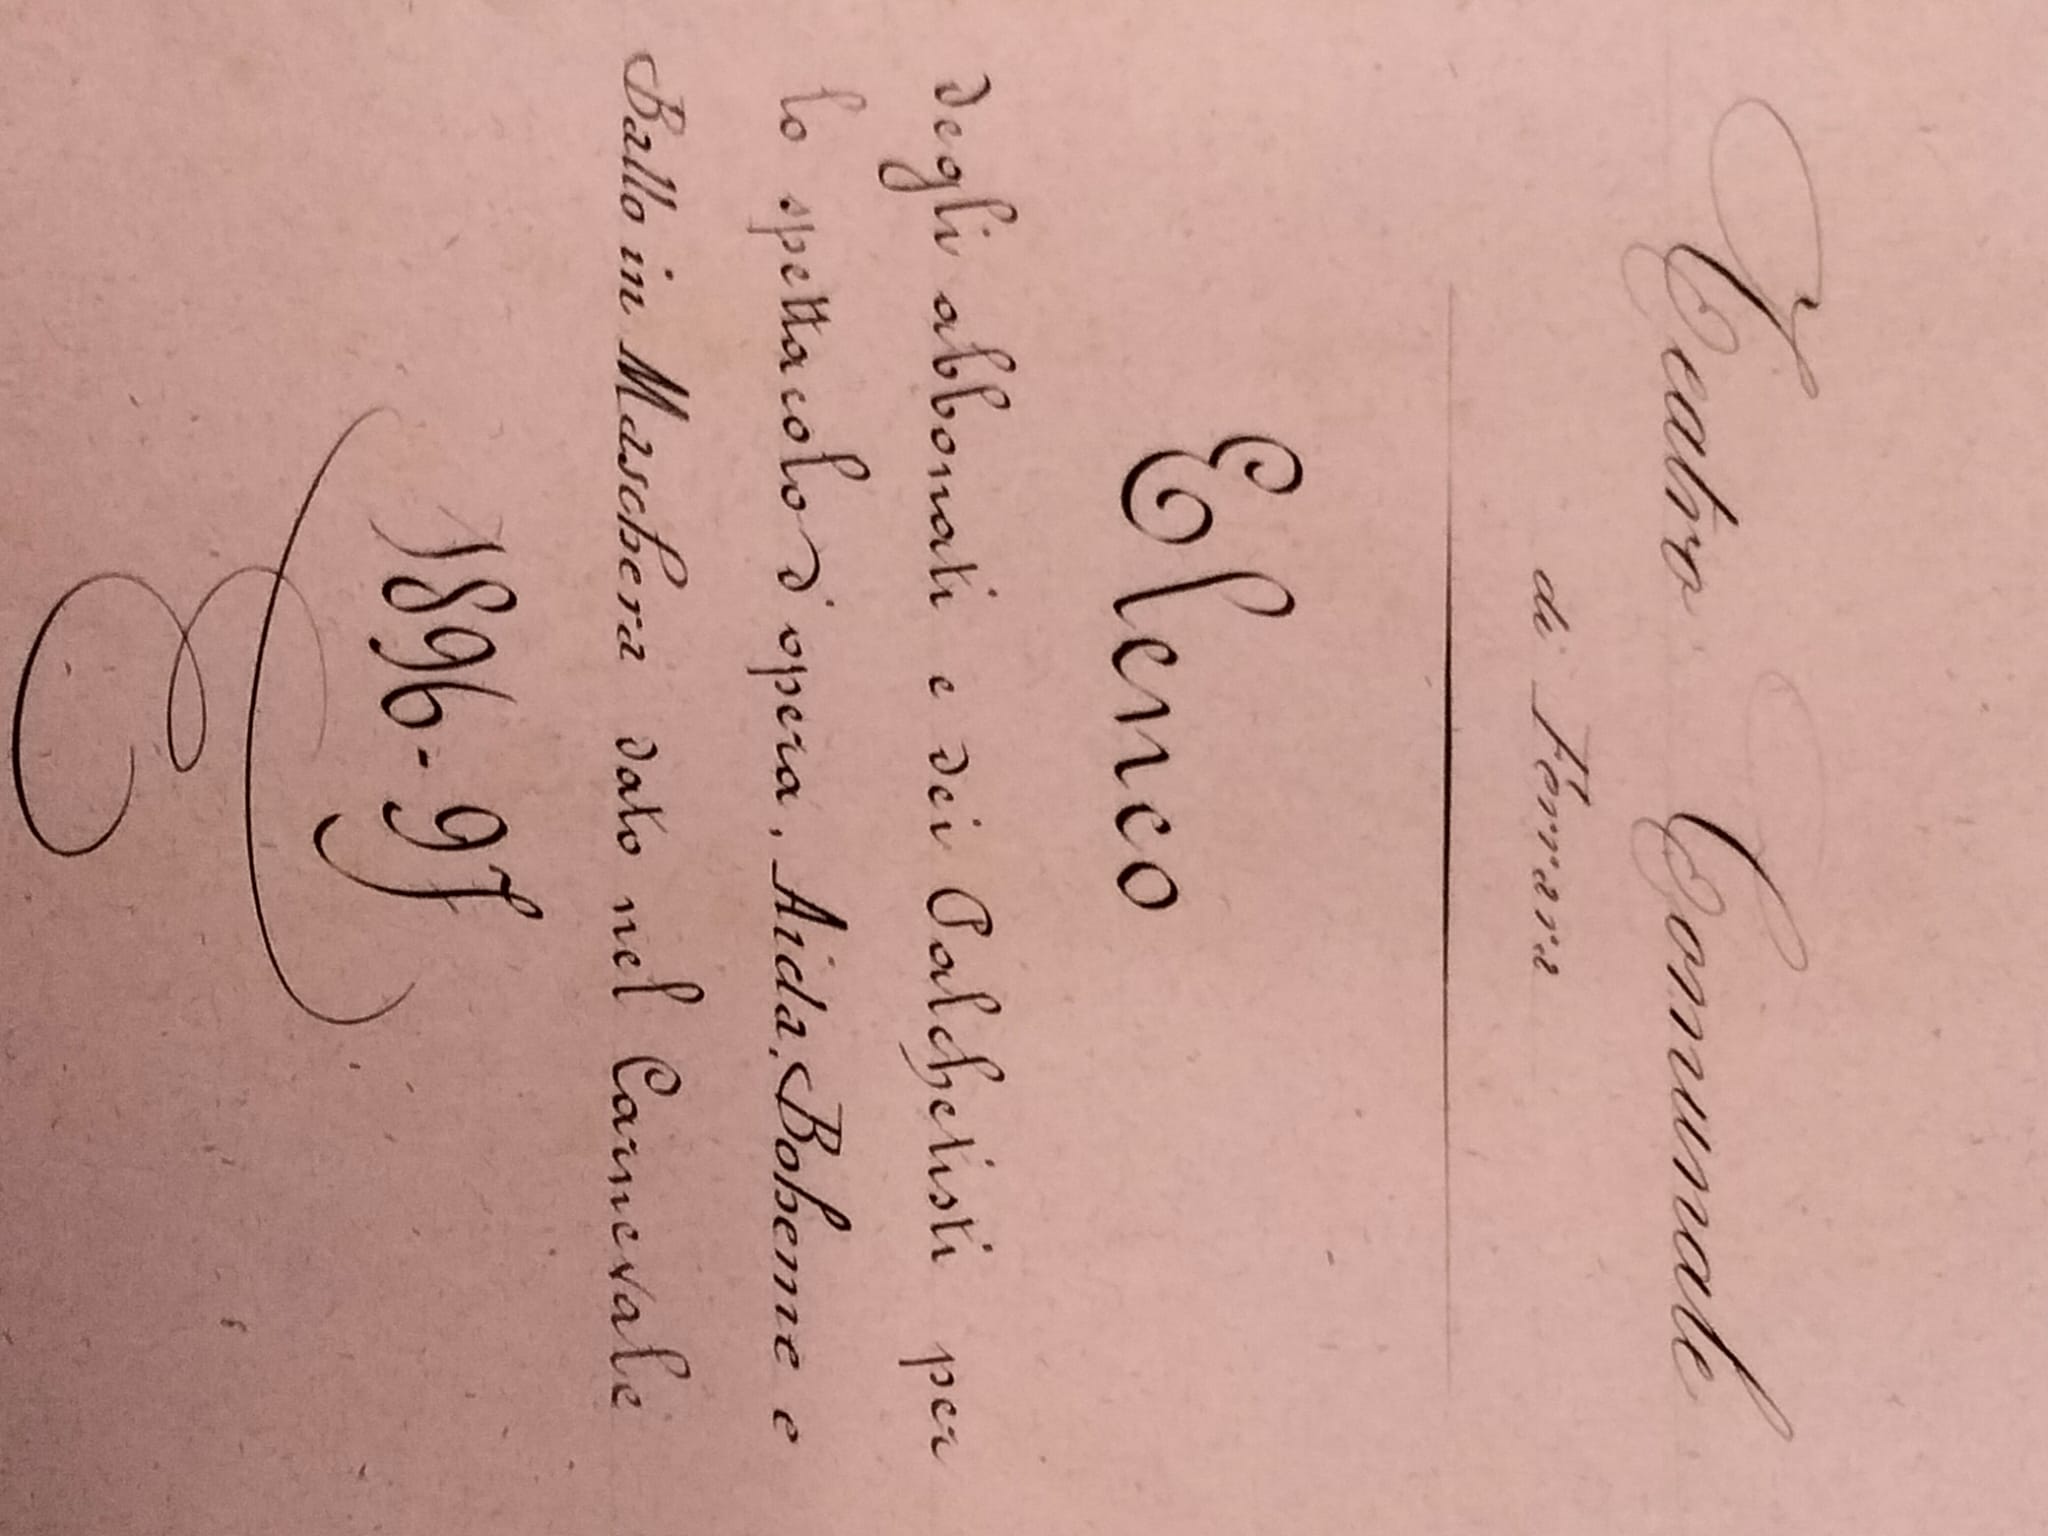 Teatro Comunale
di Ferrara
Elenco
degli abbonati e dei Palchetisti per
lo spettacolo d'opera, Aida, Boheme e
Ballo in Maschera dato nel Carnevale
1896-97